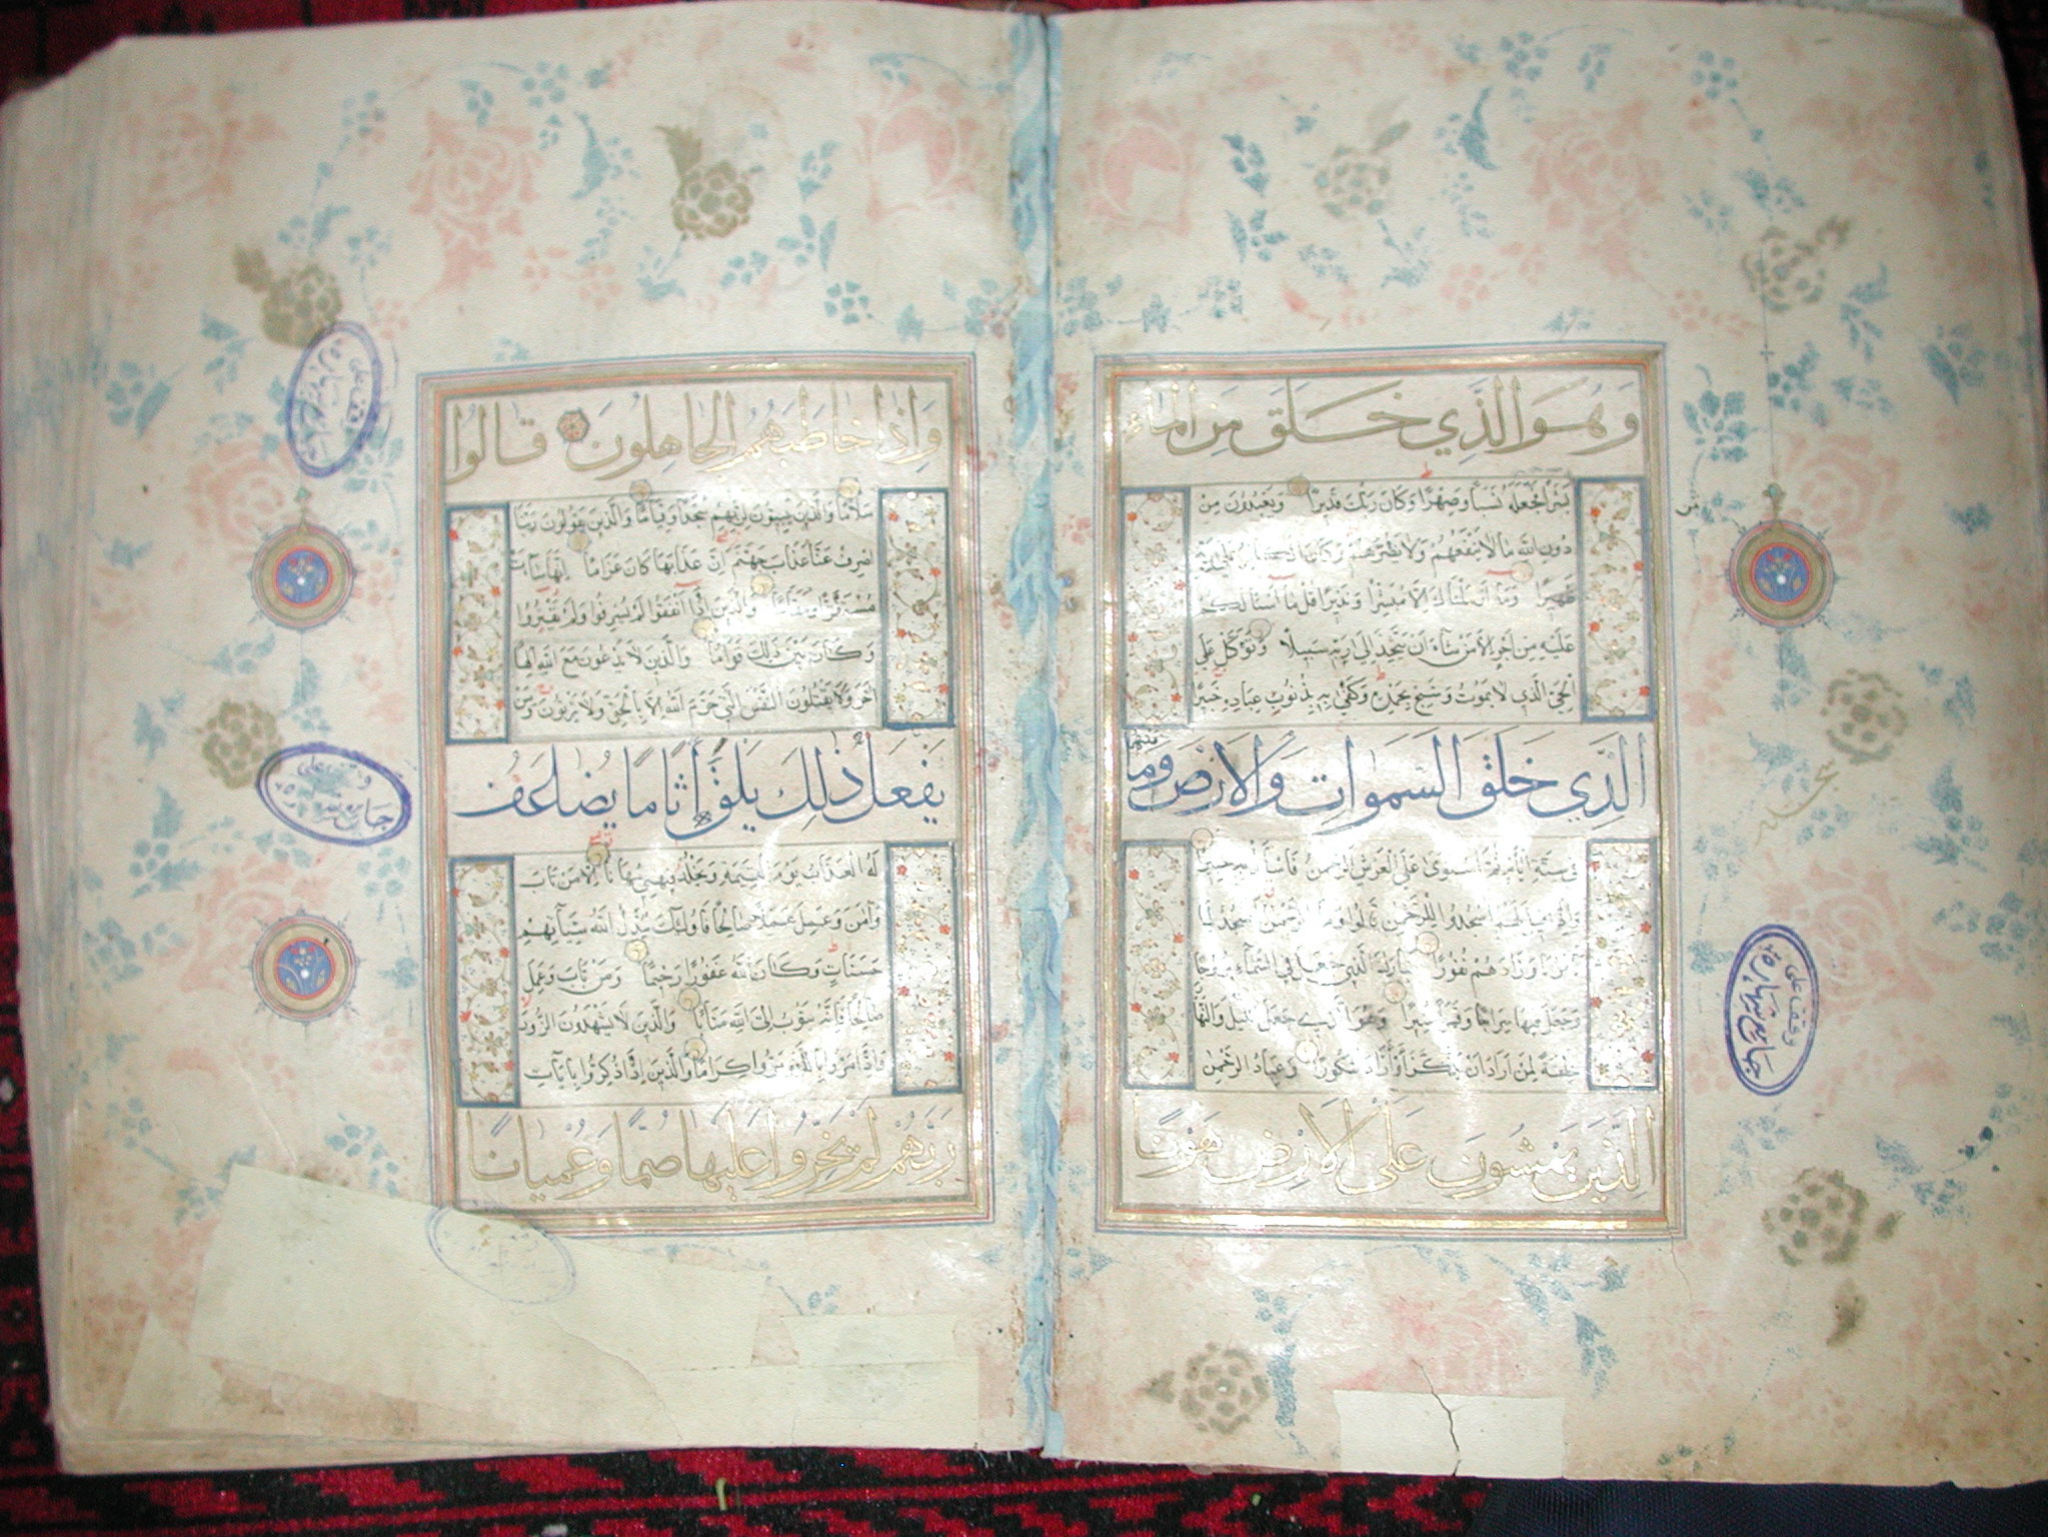 وَهُوَ الَّذِي خَلَقَ مِنَ الْمَاءِ
بَشَرًا فَجَعَلَهُ نَسَبًا وَصِهْرًا وَكَانَ رَبُّكَ قَدِيرًا وَيَعْبُدُونَ مِنْ
دُونِ اللَّهِ مَا لَا يَنْفَعُهُمْ وَلَا يَضُرُّهُمْ وَكَانَ الْكَافِرُ عَلَى رَبِّهِ
ظَهِيرًا وَمَا أَرْسَلْنَاكَ إِلَّا مُبَشِّرًا وَنَذِيرًا قُلْ مَا أَسْأَلُكُمْ
عَلَيْهِ مِنْ أَجْرٍ إِلَّا مَنْ شَاءَ أَنْ يَتَّخِذَ إِلَى رَبِّهِ سَبِيلًا وَتَوَكَّلْ عَلَى
الْحَيِّ الَّذِي لَا يَمُوتُ وَسَبِّحْ بِحَمْدِهِ وَكَفَى بِهِ بِذُنُوبِ عِبَادِهِ خَبِيرًا
الَّذِي خَلَقَ السَّمَوَاتِ وَالْأَرْضَ وَمَا
فِي سِتَّةِ أَيَّامٍ ثُمَّ اسْتَوَى عَلَى الْعَرْشِ الرَّحْمَنُ فَاسْأَلْ بِهِ خَبِيرًا
وَإِذَا قِيلَ لَهُمُ اسْجُدُوا لِلرَّحْمَنِ قَالُوا وَمَا الرَّحْمَنُ أَنَسْجُدُ لِمَا
تَأْمُرُنَا وَزَادَهُمْ نُفُورًا تَبَارَكَ الَّذِي جَعَلَ فِي السَّمَاءِ بُرُوجًا
وَجَعَلَ فِيهَا سِرَاجًا وَقَمَرًا مُنِيرًا وَهُوَ الَّذِي جَعَلَ اللَّيْلَ وَالنَّهَارَ
خِلْفَةً لِمَنْ أَرَادَ أَنْ يَذَّكَّرَ أَوْ أَرَادَ شُكُورًا وَعِبَادُ الرَّحْمَنِ
الَّذِينَ يَمْشُونَ عَلَى الْأَرْضِ هَوْنًا
وَإِذَا خَاطَبَهُمُ الْجَاهِلُونَ قَالُوا
سَلَامًا وَالَّذِينَ يَبِيتُونَ لِرَبِّهِمْ سُجَّدًا وَقِيَامًا وَالَّذِينَ يَقُولُونَ رَبَّنَا
اصْرِفْ عَنَّا عَذَابَ جَهَنَّمَ إِنَّ عَذَابَهَا كَانَ غَرَامًا إِنَّهَا سَاءَتْ
مُسْتَقَرًّا وَمُقَامًا وَالَّذِينَ إِذَا أَنْفَقُوا لَمْ يُسْرِفُوا وَلَمْ يَقْتُرُوا
وَكَانَ بَيْنَ ذَلِكَ قَوَامًا وَالَّذِينَ لَا يَدْعُونَ مَعَ اللَّهِ إِلَهًا
آخَرَ وَلَا يَقْتُلُونَ النَّفْسَ الَّتِي حَرَّمَ اللَّهُ إِلَّا بِالْحَقِّ وَلَا يَزْنُونَ وَمَنْ
يَفْعَلْ ذَلِكَ يَلْقَ أَثَامًا يُضَاعَفْ
لَهُ الْعَذَابُ يَوْمَ الْقِيَمَةِ وَيَخْلُدْ فِيهِ مُهَانًا إِلَّا مَنْ تَابَ
وَآمَنَ وَعَمِلَ عَمَلًا صَالِحًا فَأُولَئِكَ يُبَدِّلُ اللَّهُ سَيِّئَاتِهِمْ
حَسَنَاتٍ وَكَانَ اللَّهُ غَفُورًا رَحِيمًا وَمَنْ تَابَ وَعَمِلَ
صَالِحًا فَإِنَّهُ يَتُوبُ إِلَى اللَّهِ مَتَابًا وَالَّذِينَ لَا يَشْهَدُونَ الزُّورَ
وَإِذَا مَرُّوا بِاللَّغْوِ مَرُّوا كِرَامًا وَالَّذِينَ إِذَا ذُكِّرُوا بِآيَاتِ
رَبِّهِمْ لَمْ يَخِرُّوا عَلَيْهَا صُمًّا وَعُمْيَانًا
وقف علی
وقف علی